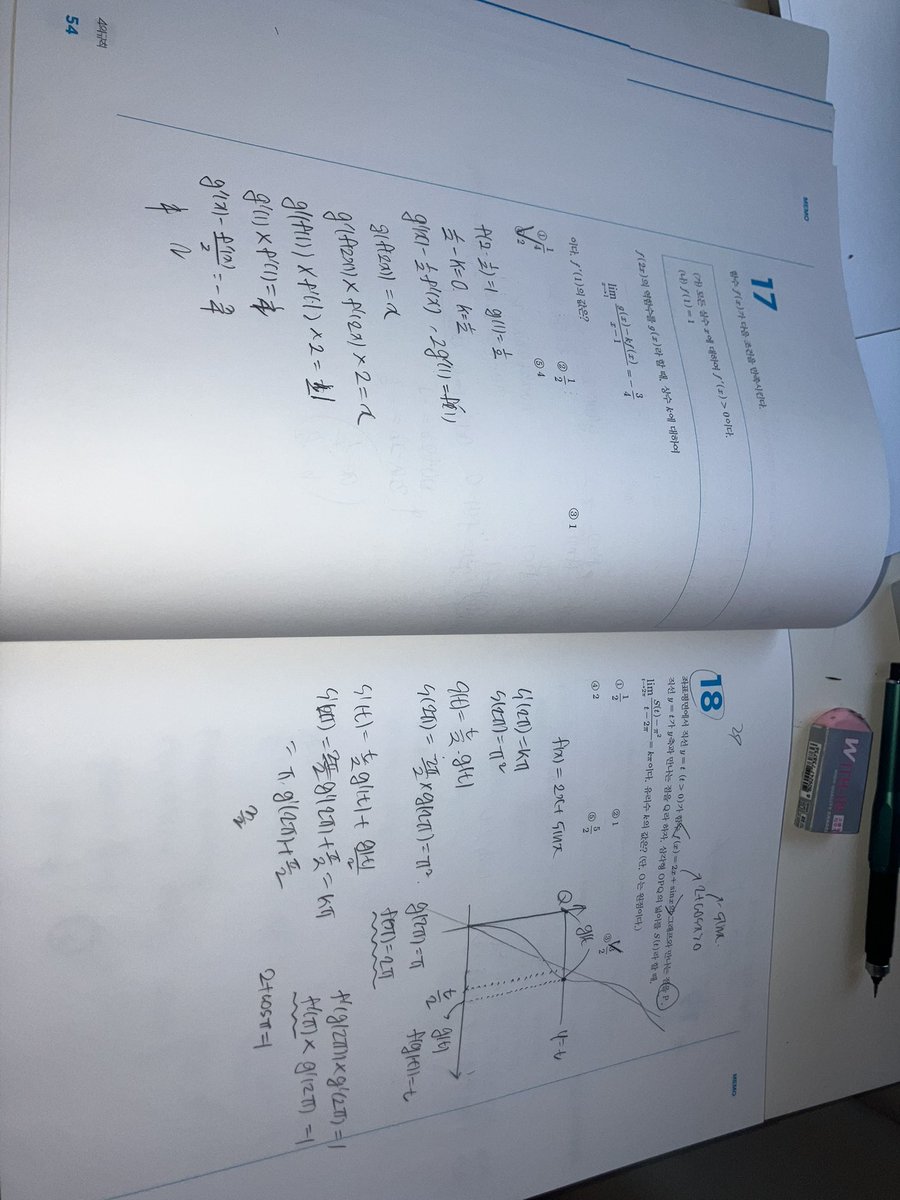 MEMO
17
함수 f(x)가 다음 조건을 만족시킨다.
(가) 모든 실수 x에 대하여 f'(x)>0이다.
(나) f(1)=1
f(2x)의 역함수를 g(x)라 할 때, 상수 k에 대하여
lim x→1 g(x)-kf(x) / x-1 = -3/4
이다. f'(1)의 값은?
① 1/4 ② 1/2 ③ 1
④ 2 ⑤ 4
f(2·1/2)=1 g(1)=1/2
1/2-k=0 k=1/2
g'(x)-1/2f'(x)
g(f(2x))=x
g'(f(2x))×f'(2x)×2=x
g'(f(1))×f'(1)×2=1
g'(1)×f'(1)=1/2
g'(x)-f'(x)/2=-3/4
수학영역
54
MEMO
18
좌표평면에서 직선 y=t (t>0)가 함수 f(x)=2x+sin x의 그래프와 만나는 점을 P,
직선 y=t가 y축과 만나는 점을 Q라 하자. 삼각형 OPQ의 넓이를 S(t)라 할 때,
lim t→2π S(t)-π² / t-2π = kπ이다. 유리수 k의 값은? (단, O는 원점이다.)
① 1/2 ② 1 ③ 3/2
④ 2 ⑤ 5/2
2+cosx>0
f(x)=2x+sinx
S'(2π)=kπ
S(2π)=π²
S(t)=t/2 g(t)
S(2π)=2π/2×g(2π)=π². g(2π)=π
f(π)=2π
S'(t)=t/2 g'(t)+g(t)/2
S'(2π)=2π/2 g'(2π)+π/2=kπ
=π g'(2π)+π/2
Q
g(t)
y=t
t/2
g(t)
f(g(t))=t
f'(g(2π))×g'(2π)=1
f'(π)×g'(2π)=1
2+cosπ=1